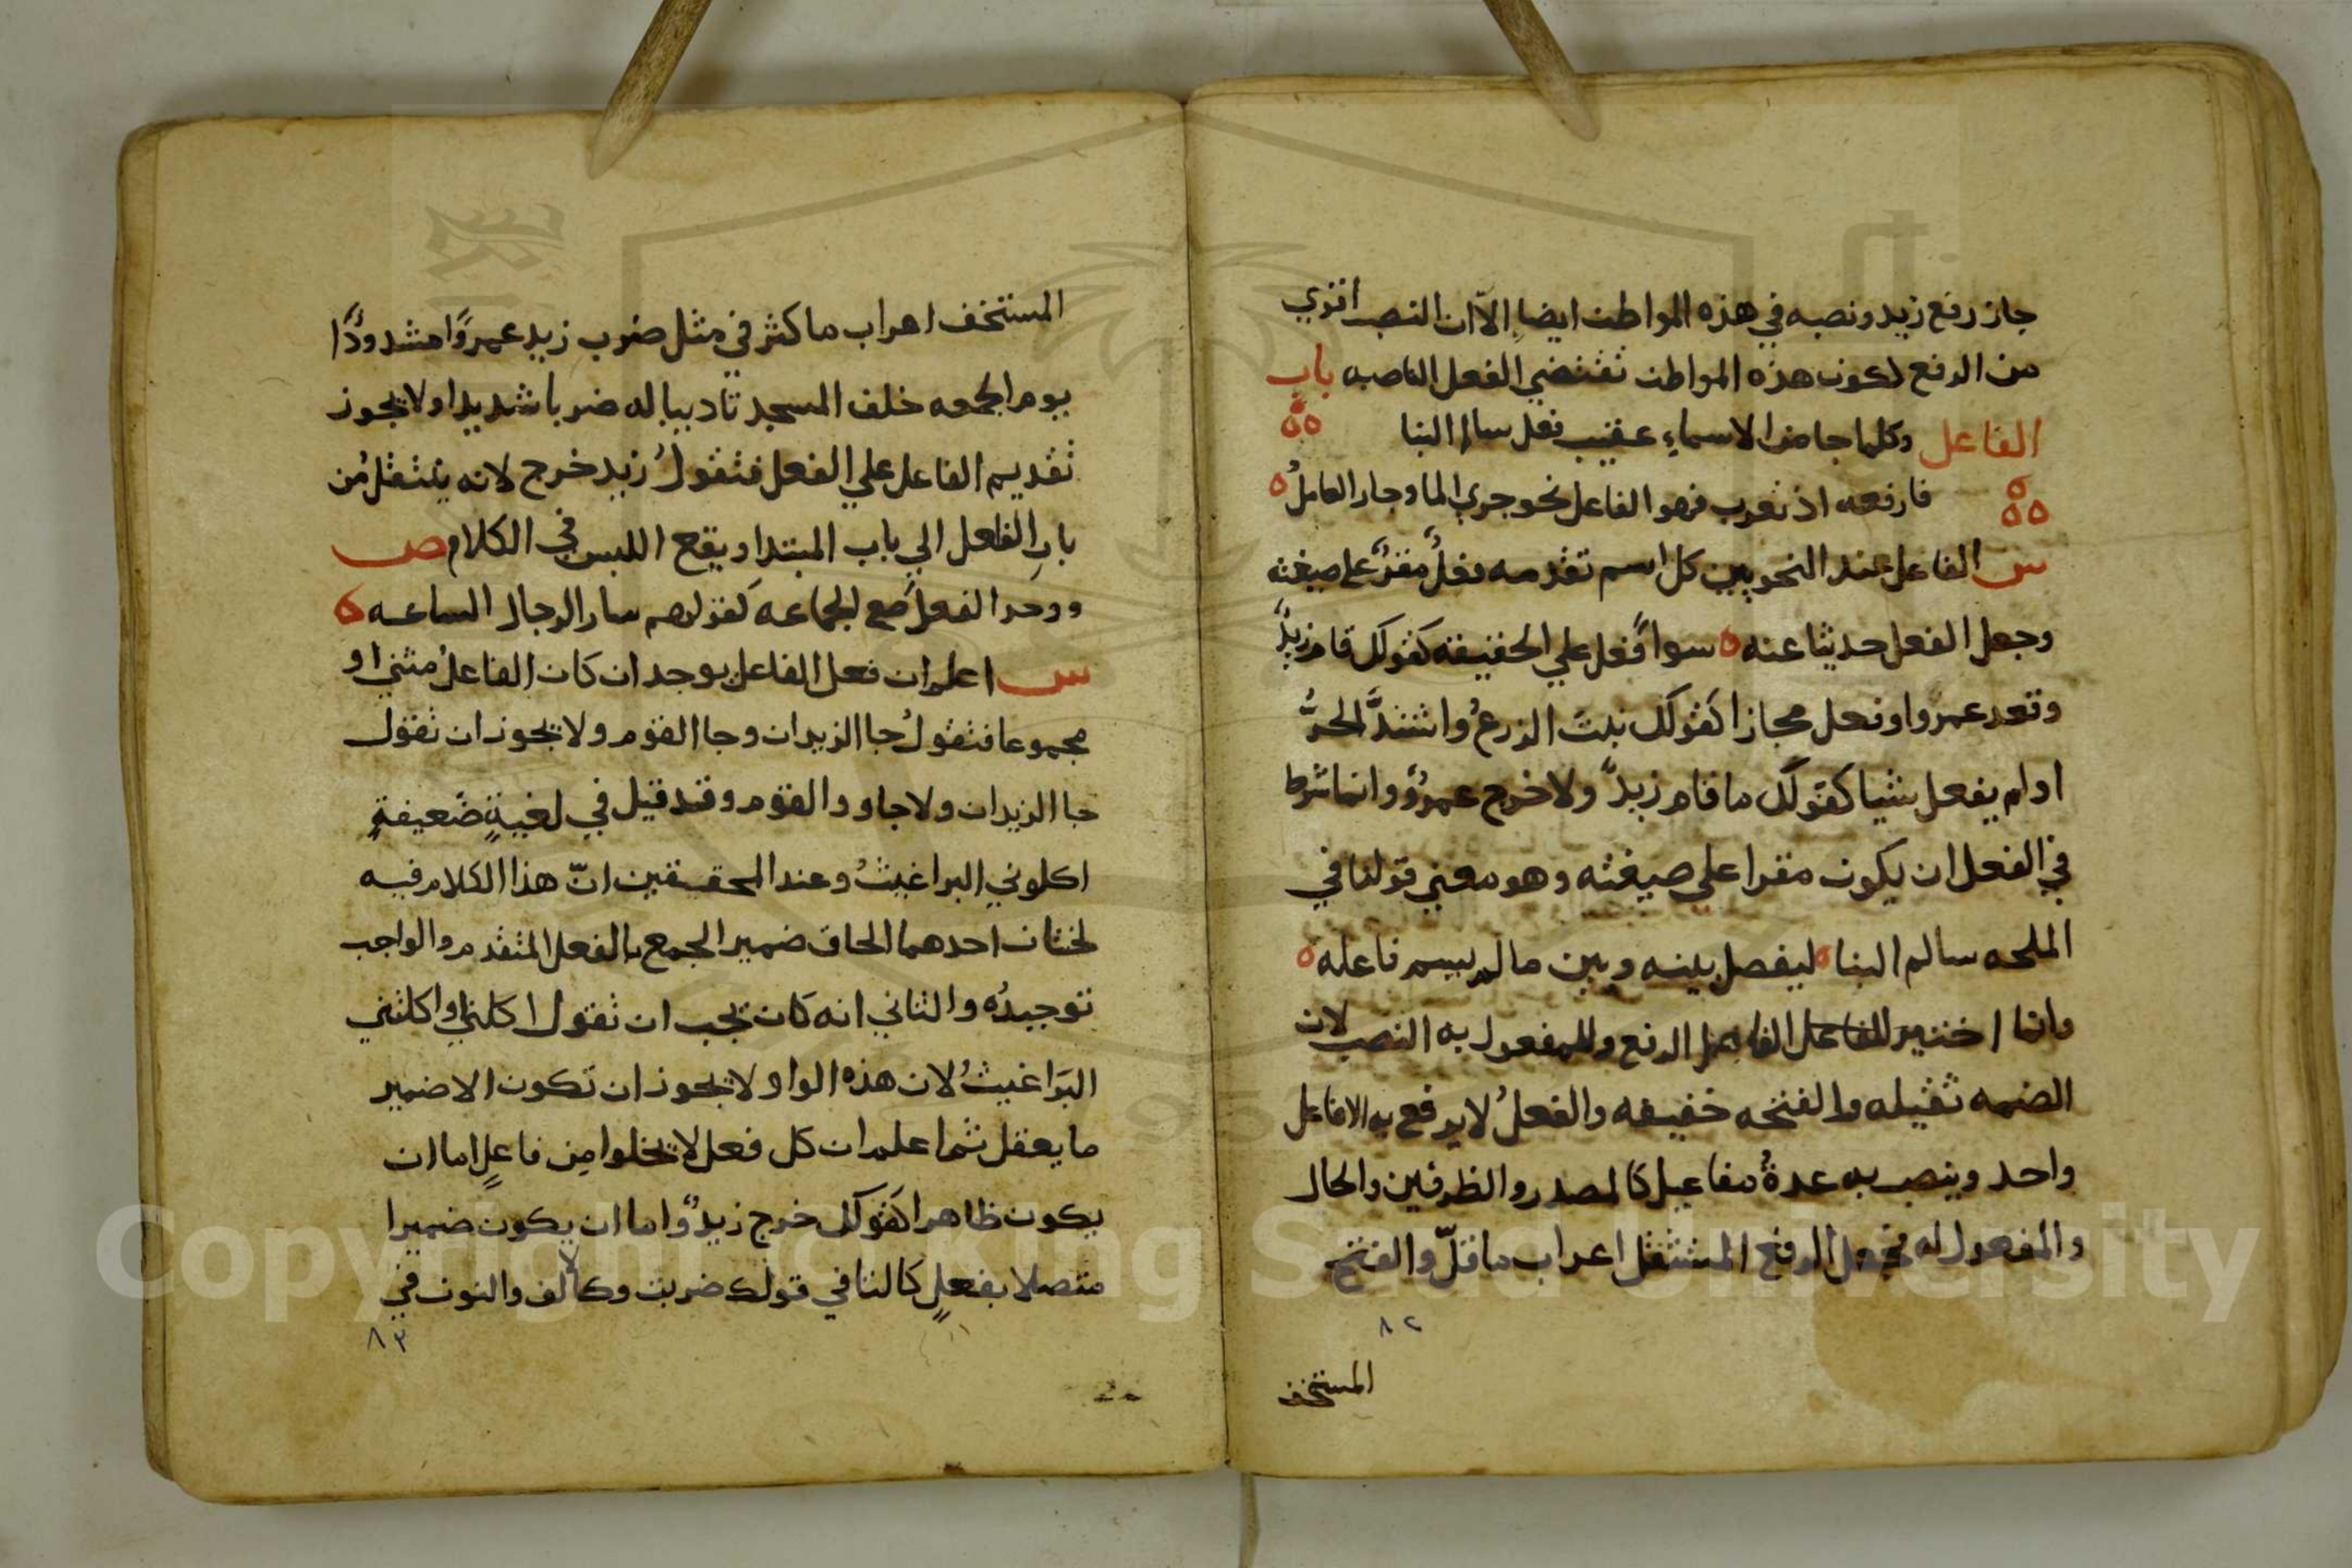 جاز رفع زيد ونصبه في هذه المواطن ايضا الاّ ان النصب اقوي
من الرفع لكون هذه المواطن تقتضي الفعل الناصبه باب
الفاعل وكلما جا من الاسماءِ عقيب فعل سالم البنا
فارفعه اذ تعرب فهو الفاعل نحو جري الما وجار العاملُ
س الفاعل عند النحويين كل اسم تقدمه فعلٌ مقرٌ علي صيغته
وجعل الفعل حديثا عنه سوا فعل علي الحقيقة كقولك قام زيدٌ
وقعد عمرو او فعل مجازا كقولك نبتَ الزرعُ واشتدَّ الحرُّ
او لم يفعل شيا كقولك ما قام زيدٌ ولا خرج عمرٌو وانما شرط
في الفعل ان يكون مقرا علي صيغته وهو معني قولنا في
الملحه سالم البنا ليفصل بينه وبين مالم يسم فاعله
وانما اختير للفاعل الرفع وللمفعول به النصب لان
الضمه ثقيله والفتحه خفيفه والفعلُ لا يرفع به الا فاعل
واحد وينصب به عدةُ مفاعيل كالمصدر والظرفين والحال
والمفعول له فجعل الرفع المستثقل اعراب ما قلّ والفتح
٨٢
المستخف
المستخف اعراب ما كثر في مثل ضرب زيد عمرًا مشدودًا
يوم الجمعه خلف المسجد تاديبا له ضربا شديدا ولا يجوز
تقديم الفاعل علي الفعل فتقولُ زيد خرج لانه ينتقل من
باب الفاعل الي باب المبتدا ويقع اللبس في الكلام ص
ووحد الفعل مع الجماعه كقولهم سار الرجال الساعه
س اعلم ان فعل الفاعل يوحد ان كان الفاعلُ مثني او
مجموعا فتقولُ جا الزيدان وجا القوم ولا يجوز ان تقول
جا الزيدان ولا جاوو القوم وقد قيل في لغيةٍ ضعيفةٍ
اكلوني البراغيثُ وعند المحققين انّ هذا الكلام فيه
لحنان احدهما الحاق ضمير الجمع بالفعل المتقدم والواجب
توحيدُه والثاني انه كان يجب ان تقول اكلني او اكلتني
البراغيثُ لان هذه الواو لا يجوز ان تكون الا ضمير
ما يعقل ثم اعلم ان كل فعل لا يخلوا من فاعلٍ اما ان
يكون ظاهرا كقولك خرج زيدٌ واما ان يكون ضميرا
متصلا بفعلٍ كالنا في قولك ضربت وكالالف والنون في
٨٣
Copyright © King Saud University